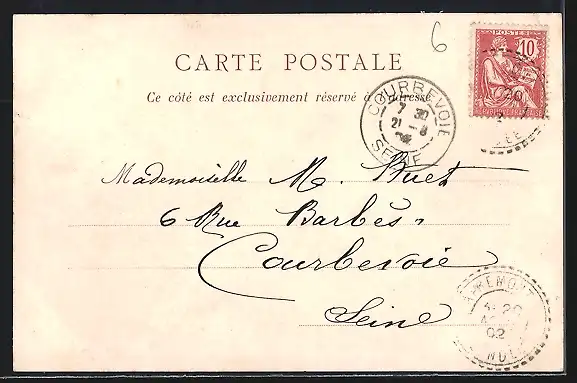 6
POSTES
10
RÉPUBLIQUE FRANÇAISE
CARTE POSTALE
Ce côté est exclusivement réservé à l'adresse
COURBEVOIE
7 30
21 - 8
SEINE
Mademoiselle M. Buet
6 Rue Barbès
Courbevoie
Seine
APREMONT
20
02